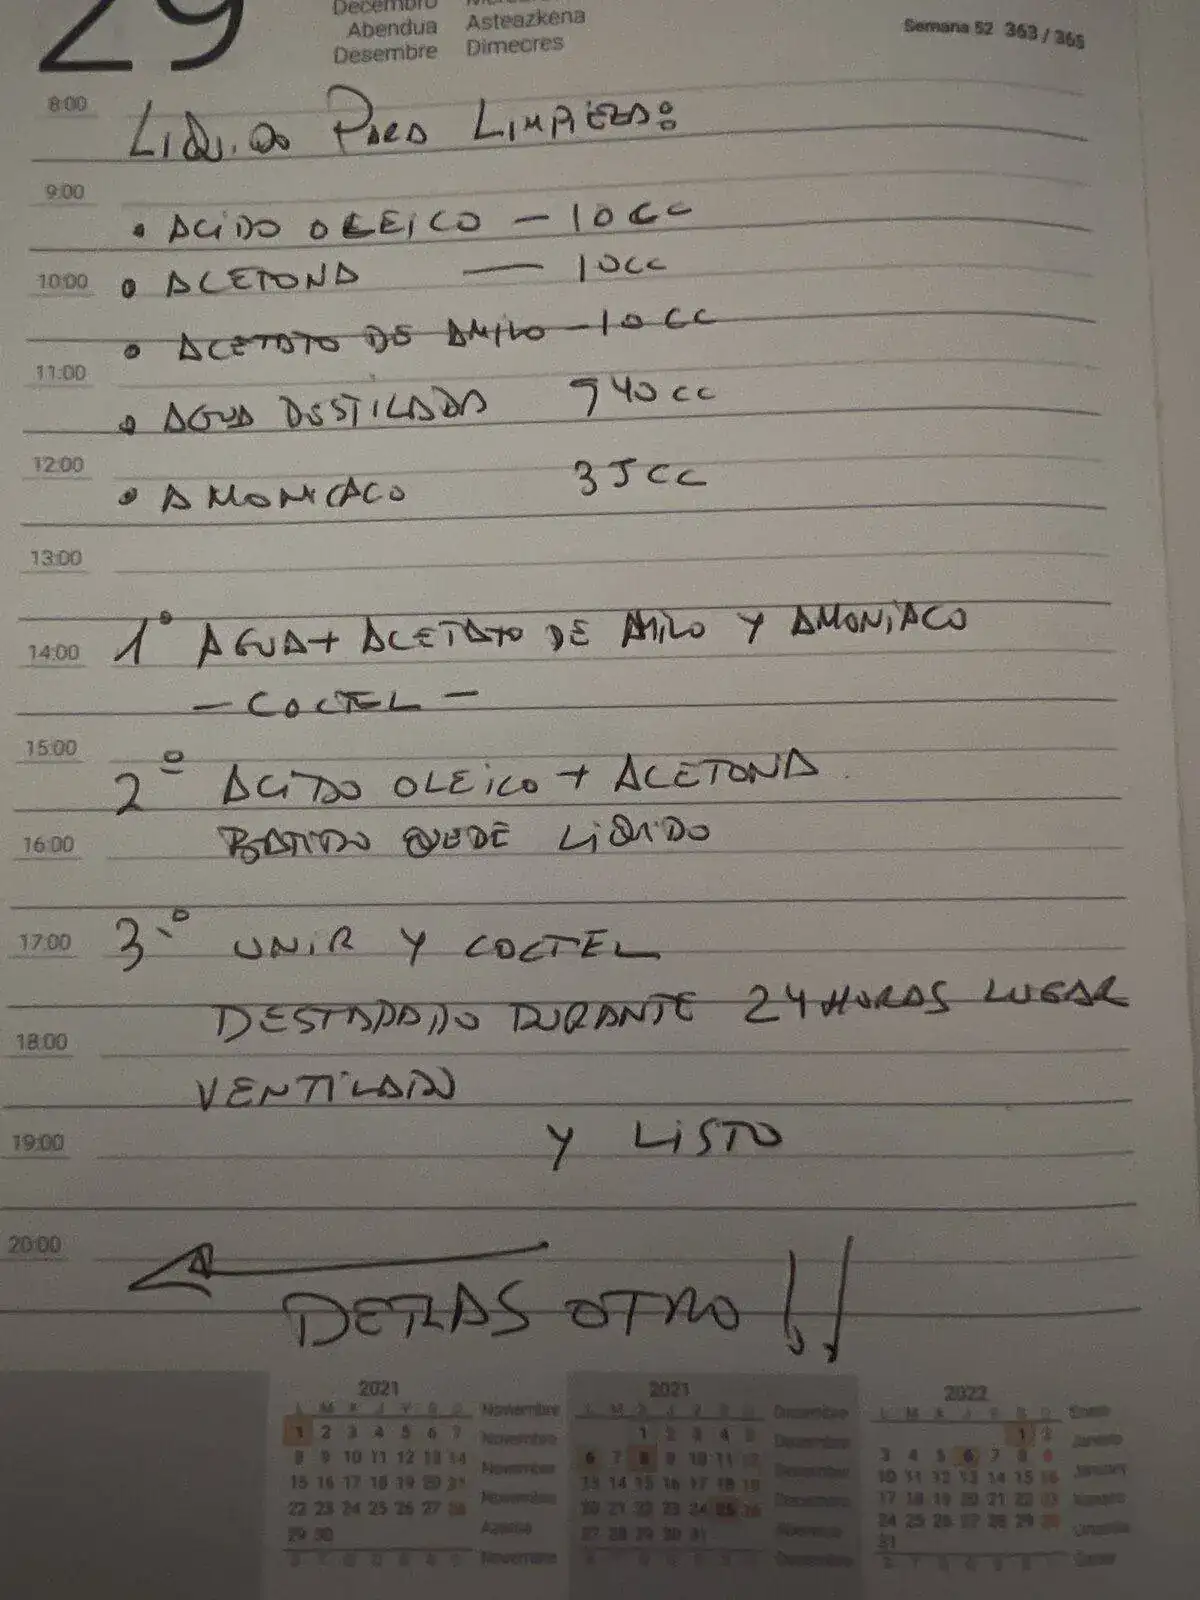 29
Decembro
Abendua Asteazkena
Desembre Dimecres
Semana 52 363 / 365
8:00 LIQUIDO PARA LIMPIEZA:
9:00
• ACIDO OLEICO — 10 CC
10:00 • ACETONA — 10CC
• ACETATO DE AMILO — 10 CC
11:00
• AGUA DESTILADA 940 CC
12:00
• AMONIACO 35CC
13:00
14:00 1º AGUA + ACETATO DE AMILO Y AMONIACO
— COCTEL —
15:00
2º ACIDO OLEICO + ACETONA
16:00 BATIDO QUEDE LIQIDO
17:00 3.º UNIR Y COCTEL
DESTAPADO DURANTE 24 HORAS LUGAR
18:00
VENTILADO
19:00 Y LISTO
20:00
DETRAS OTRO !!
2021 2021 2022
L M X J V S D Noviembre
1 2 3 4 5 6 7
8 9 10 11 12 13 14
15 16 17 18 19 20 21
22 23 24 25 26 27 28
29 30
1 2 3 4 5
6 7 8 9 10 11 12
13 14 15 16 17 18 19
20 21 22 23 24 25 26
27 28 29 30 31
1 2
3 4 5 6 7 8 9
10 11 12 13 14 15 16
17 18 19 20 21 22 23
24 25 26 27 28 29 30
31